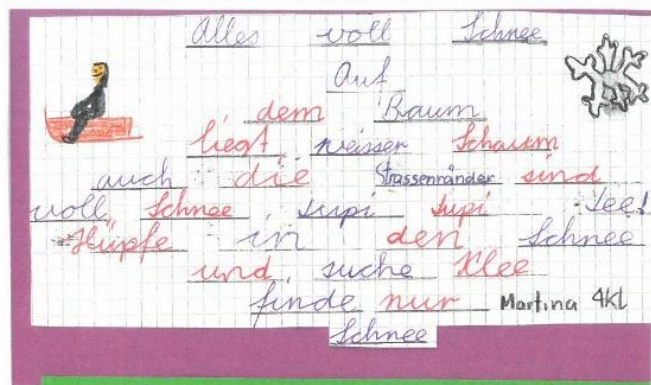 Alles voll Schnee
Auf
dem Baum
liegt weisser Schaum
auch die Strassenränder sind
voll Schnee, Jupi Jupi Jee!
Hüpfe in den Schnee
und suche Klee
finde nur Martina 4kl
Schnee